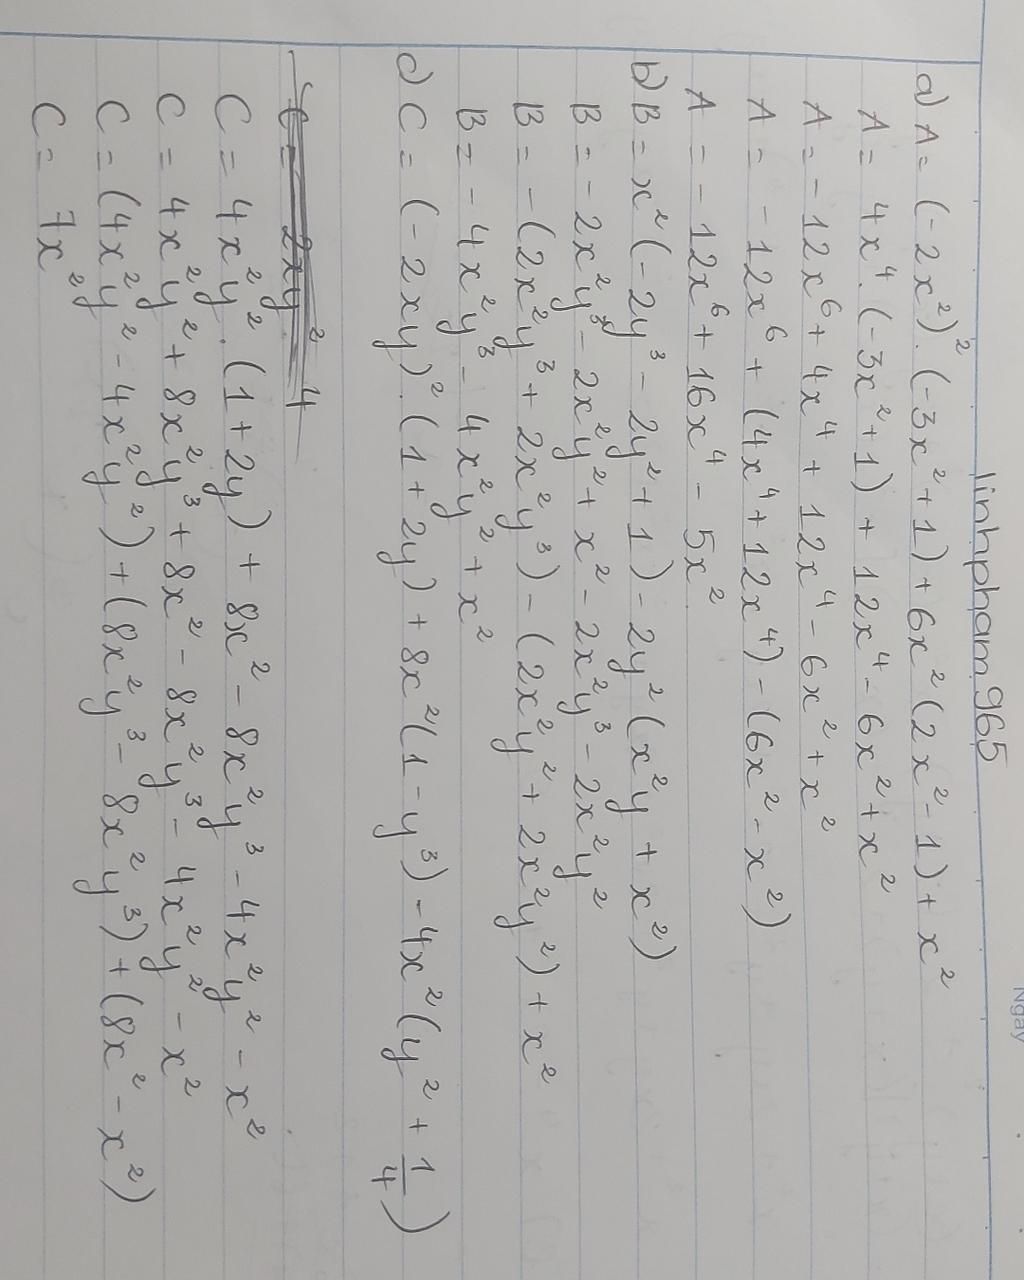 Ngày
linhpham965
a) A = (-2x²)² . (-3x² + 1) + 6x² (2x² - 1) + x²
A = 4x⁴ . (-3x² + 1) + 12x⁴ - 6x² + x²
A = -12x⁶ + 4x⁴ + 12x⁴ - 6x² + x²
A = -12x⁶ + (4x⁴ + 12x⁴) - (6x² - x²)
A = -12x⁶ + 16x⁴ - 5x²
b) B = x² (-2y³ - 2y² + 1) - 2y² (x²y + x²)
B = -2x²y³ - 2x²y² + x² - 2x²y³ - 2x²y²
B = -(2x²y³ + 2x²y³) - (2x²y² + 2x²y²) + x²
B = -4x²y³ - 4x²y² + x²
c) C = (-2xy)² . (1 + 2y) + 8x² (1 - y³) - 4x² (y² + 1/4)
C = 4x²y² . (1 + 2y) + 8x² - 8x²y³ - 4x²y² - x²
C = 4x²y² + 8x²y³ + 8x² - 8x²y³ - 4x²y² - x²
C = (4x²y² - 4x²y²) + (8x²y³ - 8x²y³) + (8x² - x²)
C = 7x²